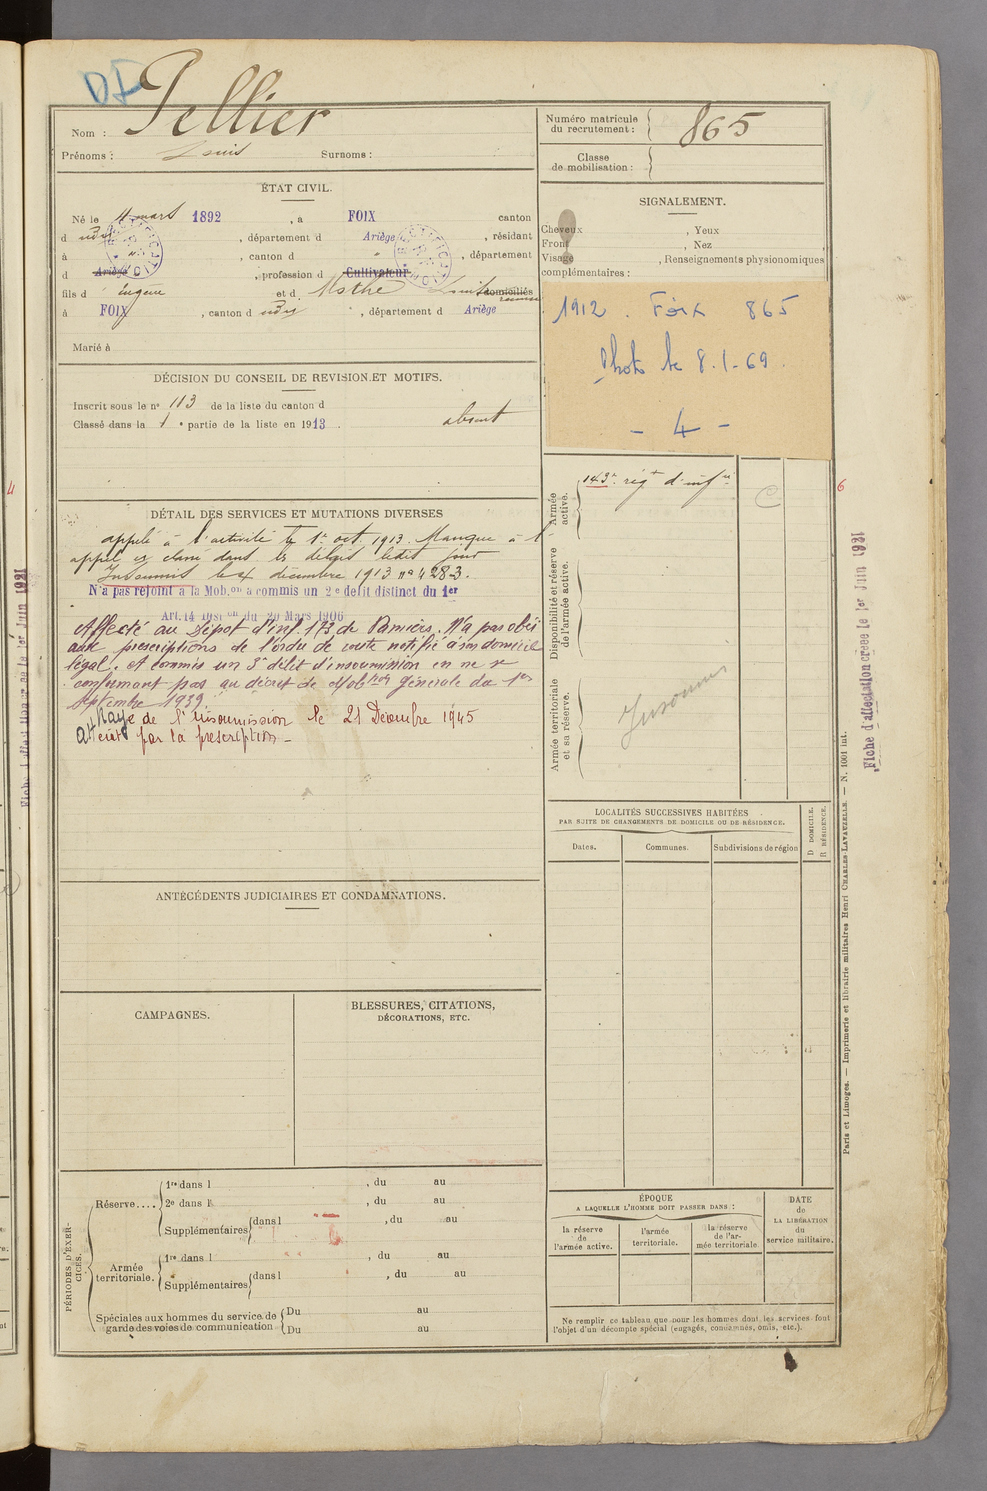 DF
Nom : Pellier
Prénoms : Louis Surnoms :
Numéro matricule du recrutement : 865
Classe de mobilisation :
ÉTAT CIVIL.
Né le 4 mars 1892, à FOIX canton
d udit, département d Ariège, résidant
à , canton d " , département
d Ariège, profession d Cultivateur
fils d' Eugène et d Mothe Louise domiciliés
à FOIX, canton d udit, département d Ariège
Marié à
SIGNALEMENT.
Cheveux , Yeux
Front , Nez ,
Visage , Renseignements physionomiques
complémentaires :
1912 . Foix 865
Photo le 8.1.69.
- 4 -
DÉCISION DU CONSEIL DE REVISION ET MOTIFS.
Inscrit sous le no 113 de la liste du canton d
Classé dans la 1e partie de la liste en 1913. absent
DÉTAIL DES SERVICES ET MUTATIONS DIVERSES
appelé à l'activité le 1er oct. 1913. Manque à l'
appel et classé dans les délais ledit jour
Insoumis le 4 décembre 1913 no 4283.
N'a pas rejoint à la Mob.on a commis un 2e délit distinct du 1er
Art. 14 Inston du 20 Mars 1906
Affecté au Dépôt d'inf. 173 de Pamiers. N'a pas obéi
aux prescriptions de l'ordre de route notifié à son domicile
légal. A commis un 3e délit d'insoumission en ne se
conformant pas au décret de Mobtion Générale du 1er
septembre 1939.
Rayé de l'insoumission le 21 Décembre 1945
atteint par la prescription -
Armée active.
143e régt d'infie
C
Disponibilité et réserve de l'armée active.
Armée territoriale et sa réserve.
Insoumis
LOCALITÉS SUCCESSIVES HABITÉES
PAR SUITE DE CHANGEMENTS DE DOMICILE OU DE RÉSIDENCE.
Dates. Communes. Subdivisions de région
D DOMICILE.
R RÉSIDENCE.
ANTÉCÉDENTS JUDICIAIRES ET CONDAMNATIONS.
CAMPAGNES.
BLESSURES, CITATIONS,
DÉCORATIONS, ETC.
PÉRIODES D'EXERCICES.
Réserve....
1re dans l , du au
2e dans l , du au
Supplémentaires dans l , du au
Armée territoriale.
1re dans l , du au
Supplémentaires dans l , du au
Spéciales aux hommes du service de
garde des voies de communication
Du au
Du au
ÉPOQUE
A LAQUELLE L'HOMME DOIT PASSER DANS :
la réserve de l'armée active.
l'armée territoriale.
la réserve de l'armée territoriale.
DATE de LA LIBÉRATION du service militaire.
Ne remplir ce tableau que pour les hommes dont les services font
l'objet d'un décompte spécial (engagés, condamnés, omis, etc.).
Paris et Limoges. — Imprimerie et librairie militaires Henri CHARLES-LAVAUZELLE. — N. 1001 int.
Fiche d'affectation créée le 1er Juin 1921
6
4